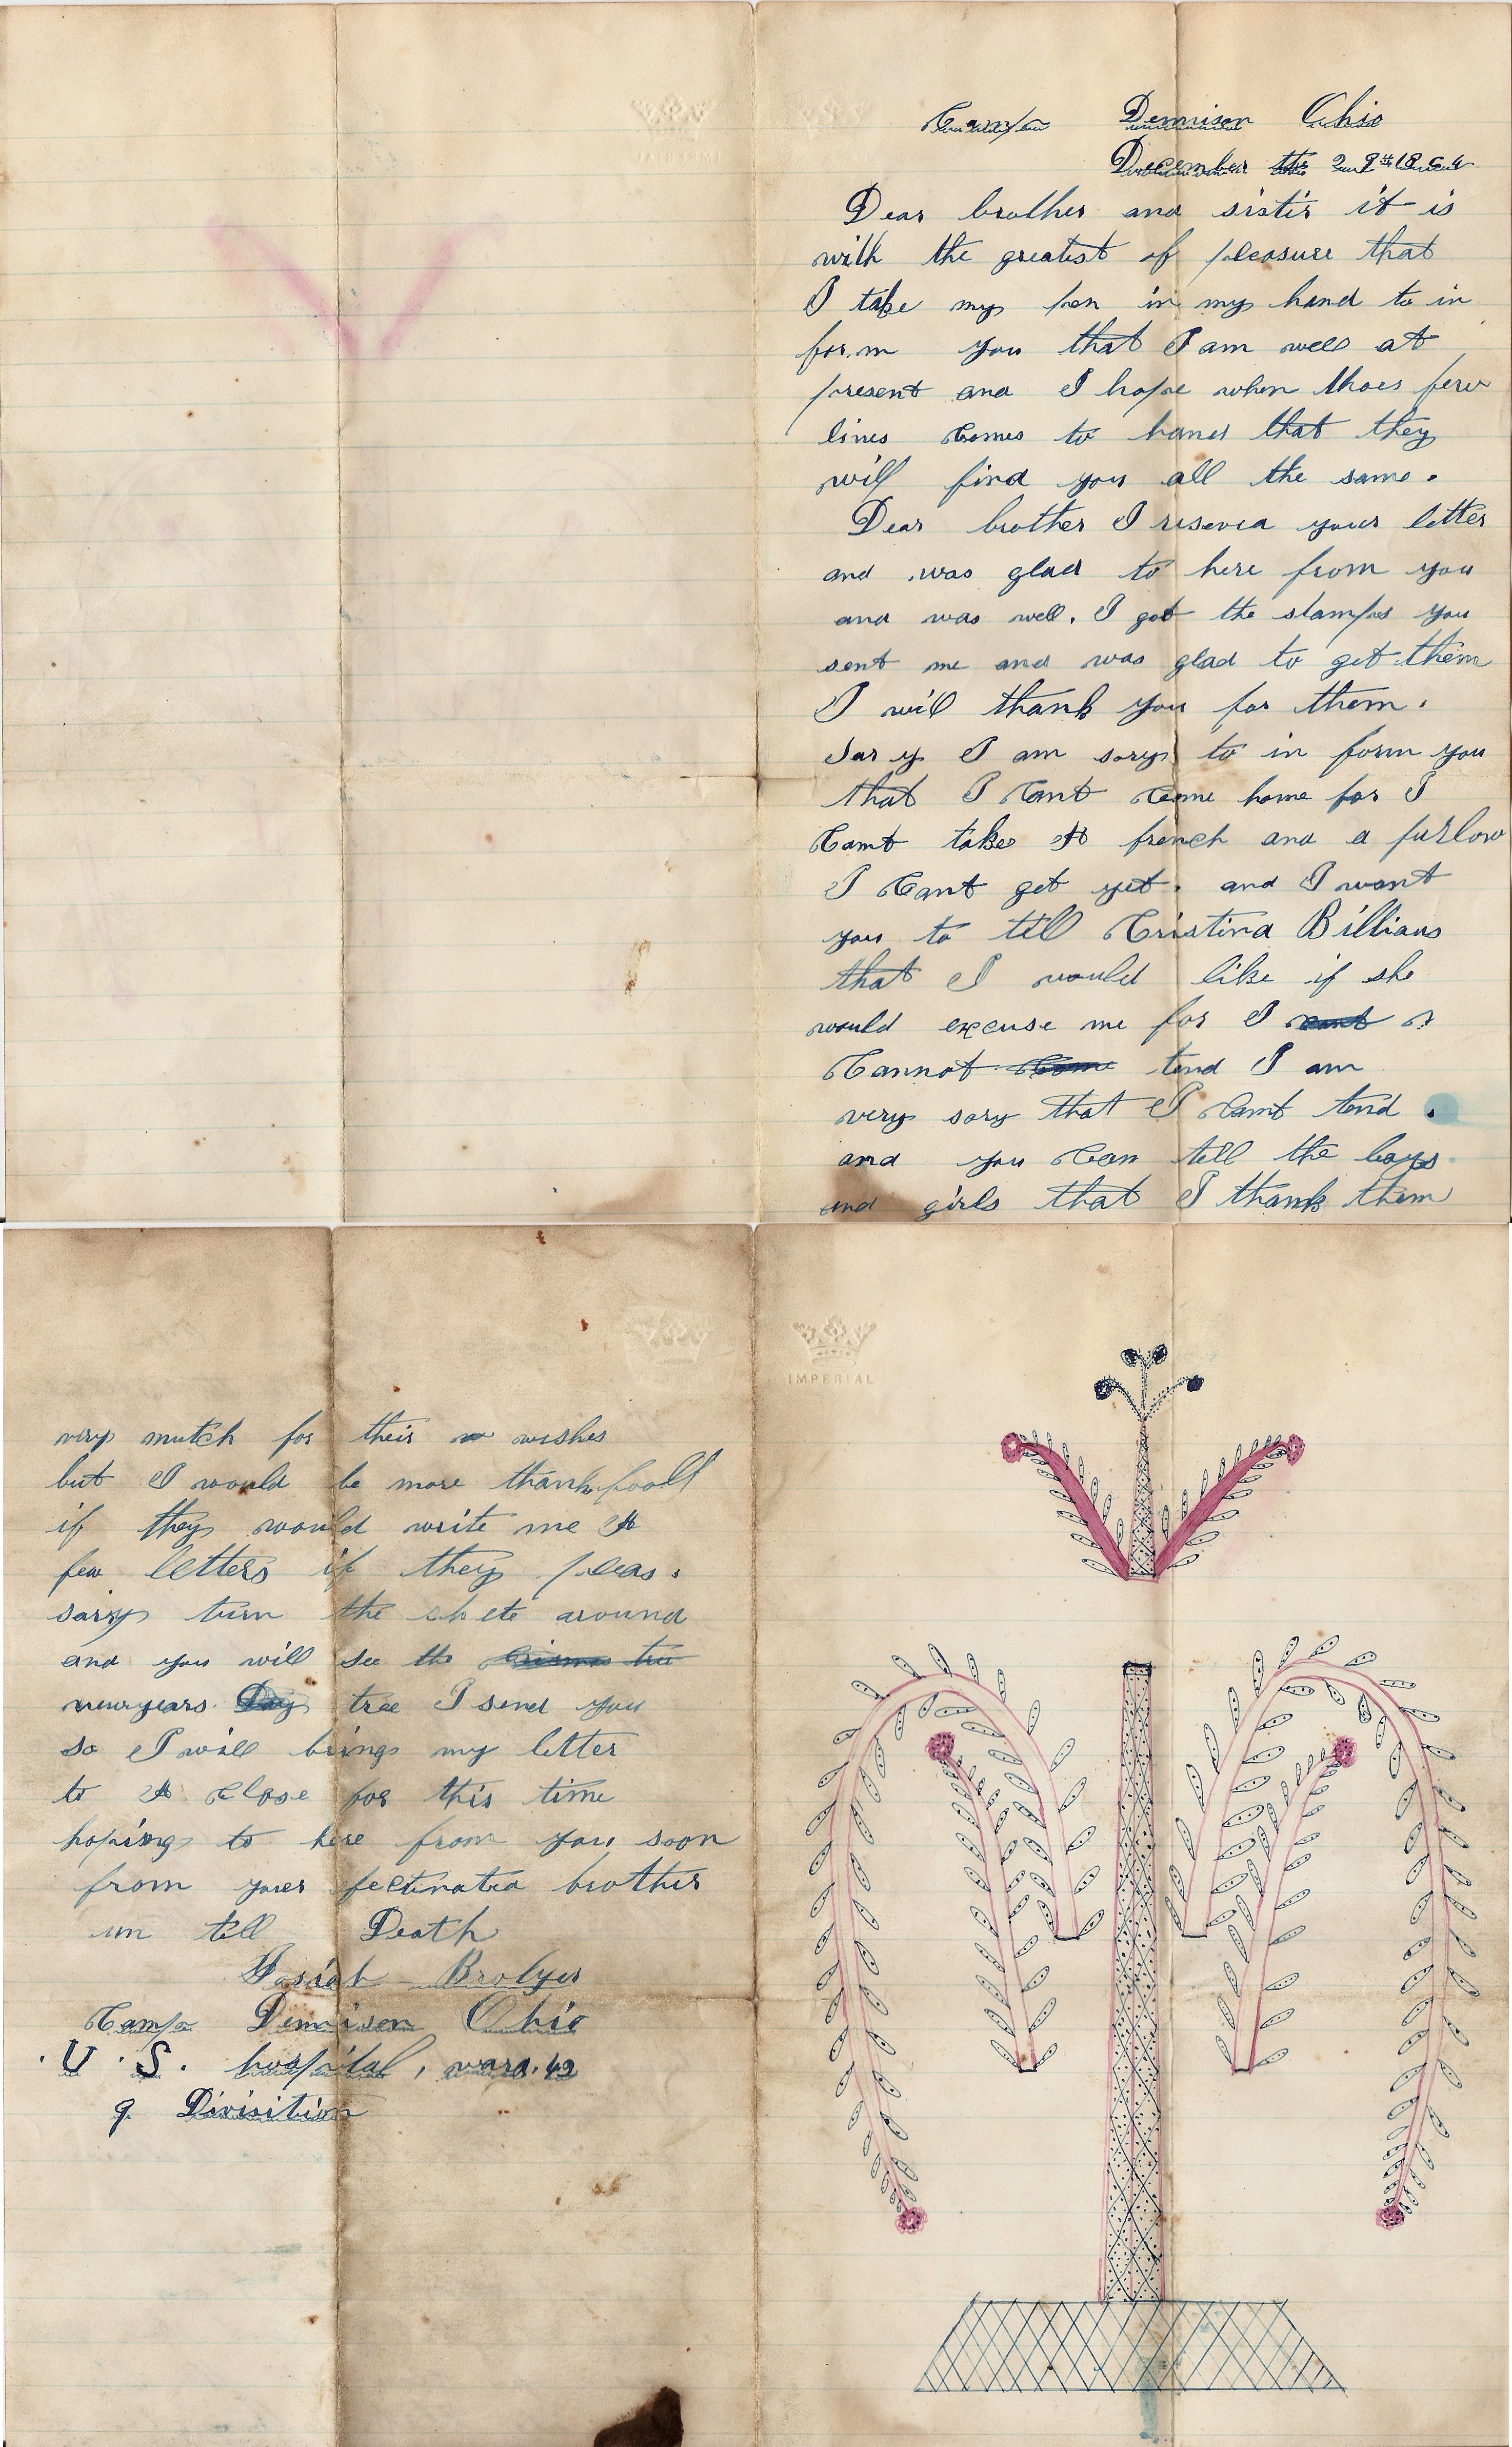 Camp Dennison Ohio
December the 29th 1864
Dear brother and sister it is
with the greatest of pleasure that
I take my pen in my hand to in
form you that I am well at
present and I hope when thoes few
lines Comes to hand that they
will find you all the same.
Dear brother I reseved your letter
and was glad to here from you
and was well. I got the stamps you
sent me and was glad to get them
I will thank you for them.
Sary I am sory to in form you
that I Cant Come home for I
Cant take A french and a furlow
I Cant get yet. and I want
you to tell Cristina Billians
that I would like if she
would excuse me for I cant
Cannot Come tend I am
very sory that I Cant tend.
and you Can tell the boys
and girls that I thank them
IMPERIAL
very mutch for their wishes
but I would be more thankfooll
if they would write me A
few letters if they pleas.
sarry turn the shete around
and you will see the Crismas tree
newyears Day tree I send you
so I will bring my letter
to A Close for this time
hoping to here from you soon
from youer fectinated brother
un tell Death
Josiah Brolyer
Camp Dennison Ohio
U.S. hospital, ward. 42
9 Divisition
IMPERIAL